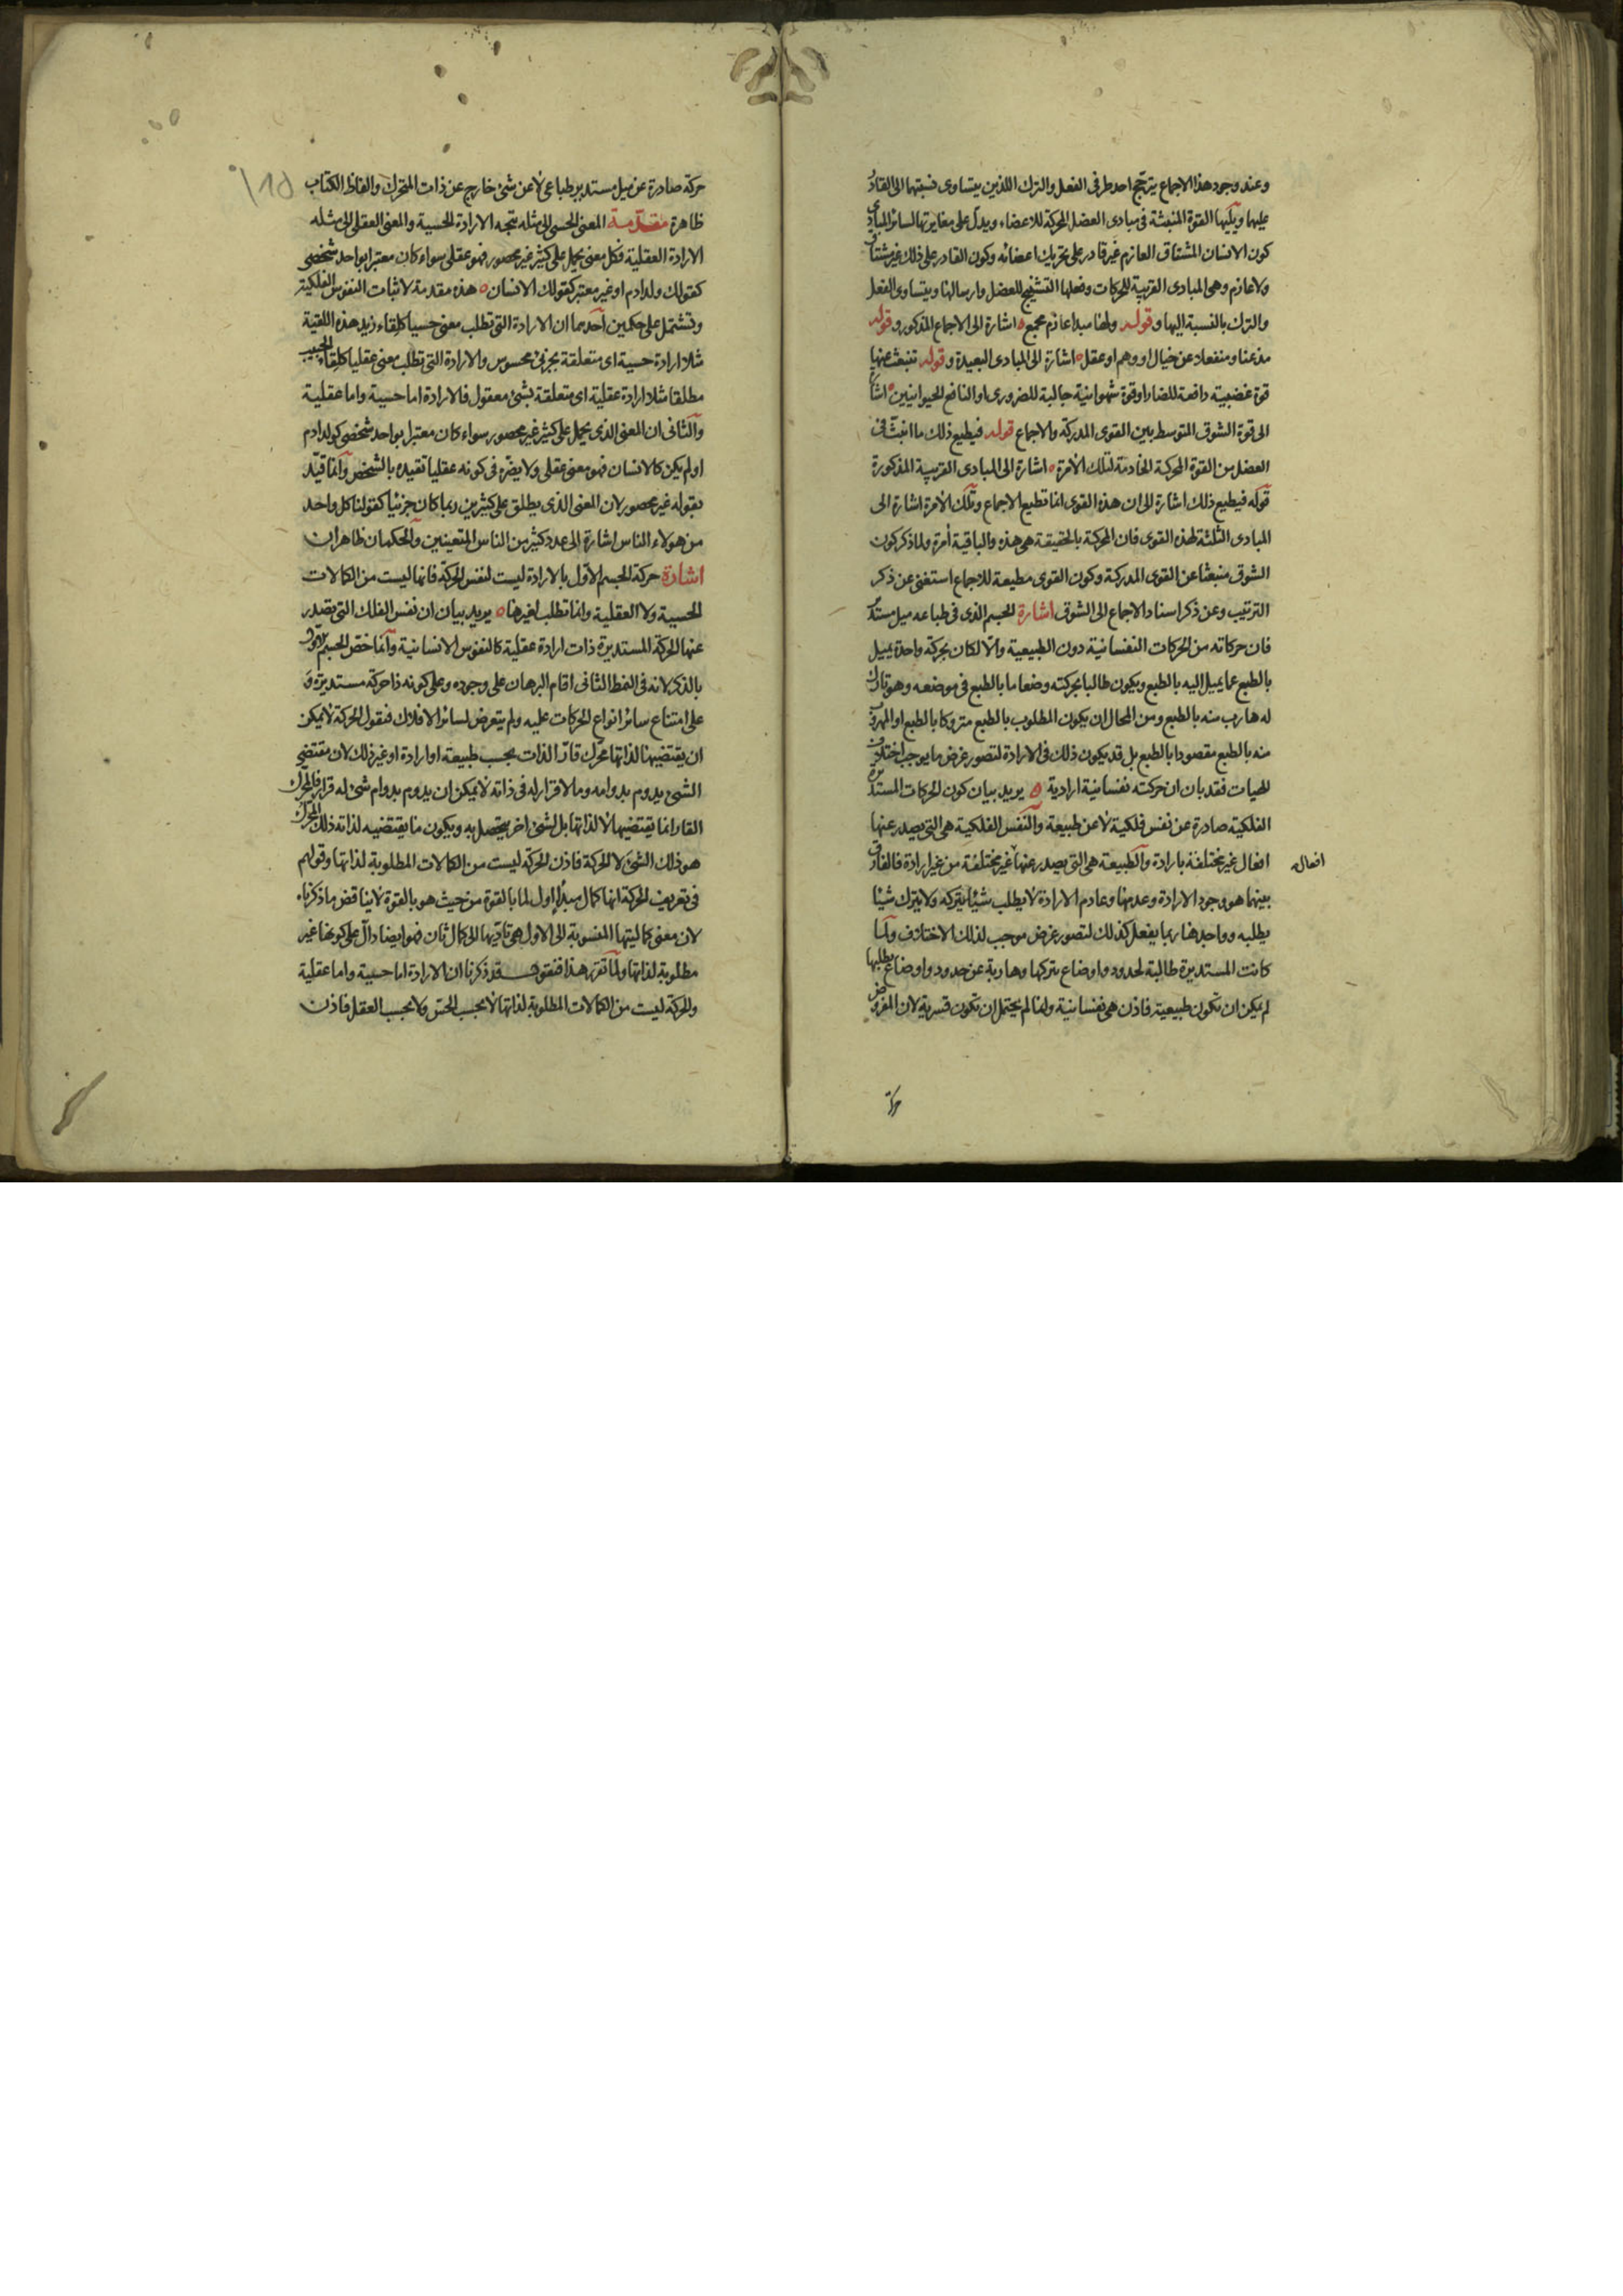 وعند وجود هذا الاجماع يترجح احد طرفى الفعل والترك اللذين يتساوى نسبتهما الى القادر
عليهما ويليها القوة المنبثة فى مبادى العضل المحركة للاعضاء ويدل على مغايرتها لسائر المبادى
كون الانسان المشتاق العازم غير قادر على تحريك اعضائه وكون القادر على ذلك غير مشتاق
ولا عازم وهى المبادى القريبة للحركات وفعلها التشنيج للعضل وارسالها ويتساوى الفعل
والترك بالنسبة اليها وقوله ولها مبدا عازم مجمع ه اشارة الى الاجماع المذكور وقوله
مذعنا ومنفعلا عن خيال او وهم او عقل ه اشارة الى المبادى البعيدة وقوله تنبعث عنها
قوة غضبية دافعة للضار او قوة شهوانية جالبة للضرورى او النافع الحيوانيين ه اشارة
الى قوة الشوق المتوسط بين القوى المدركة والاجماع قوله فيطيع ذلك ما انبث فى
العضل من القوة المحركة الخادمة لتلك الآمرة ه اشارة الى المبادى القريبة المذكورة
قوله فيطيع ذلك اشارة الى ان هذه القوى انما تطيع الاجماع وتلك الآمرة اشارة الى
المبادى الثلثة لهذه القوى فان المحركة بالحقيقة هى هذه والباقية آمرة ولما ذكر كون
الشوق منبعثا عن القوى المدركة وكون القوى مطيعة للاجماع استغنى عن ذكر
الترتيب وعن ذكر اسناد الاجماع الى الشوق اشارة الجسم الذى فى طباعه ميل مستدير
فان حركاته من الحركات النفسانية دون الطبيعية والا لكان بحركة واحدة يميل
بالطبع عما يميل اليه بالطبع ويكون طالبا بحركته وضعا ما بالطبع فى موضعه وهو تارك
له هارب منه بالطبع ومن المحال ان يكون المطلوب بالطبع متروكا بالطبع او المهروب
منه بالطبع مقصودا بالطبع بل قد يكون ذلك فى الارادة لتصور غرض ما يوجب اختلاف
الهيات فقد بان ان حركته نفسانية ارادية ه يريد بيان كون الحركات المستديرة
الفلكية صادرة عن نفس فلكية لا عن طبيعة والنفس الفلكية هى التى يصدر عنها
افعال غير مختلفة بارادة والطبيعة هى التى يصدر عنها غير مختلفة من غير ارادة فالفارق
افعال
بينهما هو وجود الارادة وعدمها وعادم الارادة لا يطلب شيئا يتركه ولا يترك شيئا
يطلبه وواجدها ربما يفعل كذلك لتصور غرض موجب لذلك الاختلاف ولما
كانت المستديرة طالبة لحدود واوضاع تتركها وهاربة عن حدود واوضاع يطلبها
لم يكن ان تكون طبيعية فاذن هى نفسانية ولها لم يحتمل ان تكون قسرية لان المفروض
حركة
حركة صادرة عن ميل مستدير طباعى لا عن شئ خارج عن ذات المتحرك والفاظ الكتاب
ظاهرة مقدمة المعنى الحسى الى مثله تتجه الارادة الحسية والمعنى العقلى الى مثله
الارادة العقلية فكل معنى يحمل على كثير غير محصور فهو عقلى سواء كان معتبرا بواحد شخصى
كقولك ولد ادم او غير معتبر كقولك الانسان ه هذه مقدمة لاثبات النفوس الفلكية
وتشتمل على حكمين احدهما ان الارادة التى تطلب معنى حسيا كلقاء زيد هذه اللقية
مثلا ارادة حسية اى متعلقة بجزئى محسوس والارادة التى تطلب معنى عقليا كلقاء الحبيب
مطلقا مثلا ارادة عقلية اى متعلقة بشئ معقول فالارادة اما حسية واما عقلية
والثانى ان المعنى الذى يحمل على كثير غير محصور سواء كان معتبرا بواحد شخصى كولد ادم
او لم يكن كالانسان فهو معنى عقلى ولا يضره فى كونه عقليا تقيده بالشخص وانما قيد
بقوله غير محصور لان المعنى الذى يطلق على كثيرين ربما كان جزئيا كقولنا كل واحد
من هولاء الناس اشارة الى عدد كثير من الناس المتعينين والحكمان ظاهران
اشارة حركة الجسم الاول بالارادة ليست لنفس الحركة فانها ليست من الكمالات
الحسية ولا العقلية وانما تطلب لغيرها ه يريد بيان ان نفس الفلك التى يصدر
عنها الحركة المستديرة ذات ارادة عقلية كالنفوس الانسانية وانما خص الجسم الاول
بالذكر لانه فى النمط الثانى اقام البرهان على وجوده وعلى كونه ذا حركة مستديرة و
على امتناع سائر انواع الحركات عليه ولم يتعرض لسائر الافلاك فنقول الحركة لا يمكن
ان يقتضيها لذاتها محرك قار الذات بحسب طبيعة او ارادة او غير ذلك لان مقتضى
الشئ يدوم بدوامه وما لا قرار له فى ذاته لا يمكن ان يدوم بدوام شئ له قرار فالمحرك
القار انما يقتضيها لا لذاتها بل لشئ اخر يتحصل به ويكون ما يقتضيه لذاته ذلك المحرك
هو ذلك الشئ لا الحركة فاذن الحركة ليست من الكمالات المطلوبة لذاتها وقولهم
فى تعريف الحركة انها كمال اول لما بالقوة من حيث هو بالقوة لا يناقض ما ذكرناه
لان معنى كماليتها المنسوبة الى الاول هى تاديها الى كمال ثان فهو ايضا دال على كونها غير
مطلوبة لذاتها ولما تقرر هذا فنقول قد ذكرنا ان الارادة اما حسية واما عقلية
والحركة ليست من الكمالات المطلوبة لذاتها لا بحسب الحس ولا بحسب العقل فاذن